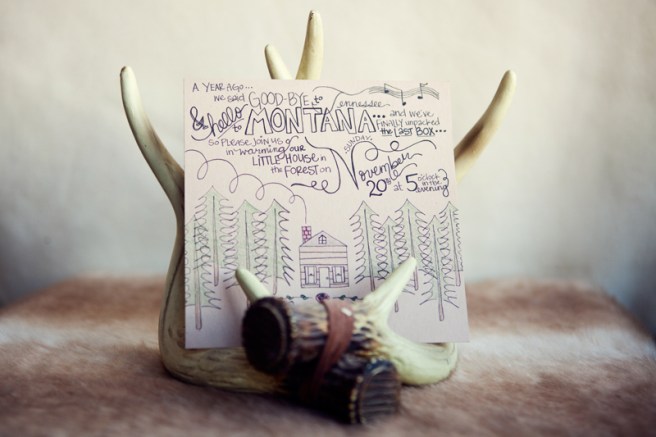 A YEAR AGO...
we said GOOD-BYE to Tennessee
& hello to MONTANA... and we've
FINALLY unpacked
the LAST BOX...
SO PLEASE JOIN US
in warming our
LITTLE HOUSE in
the FOREST on
SUNDAY,
November
20th at 5 o'clock
in the
evening